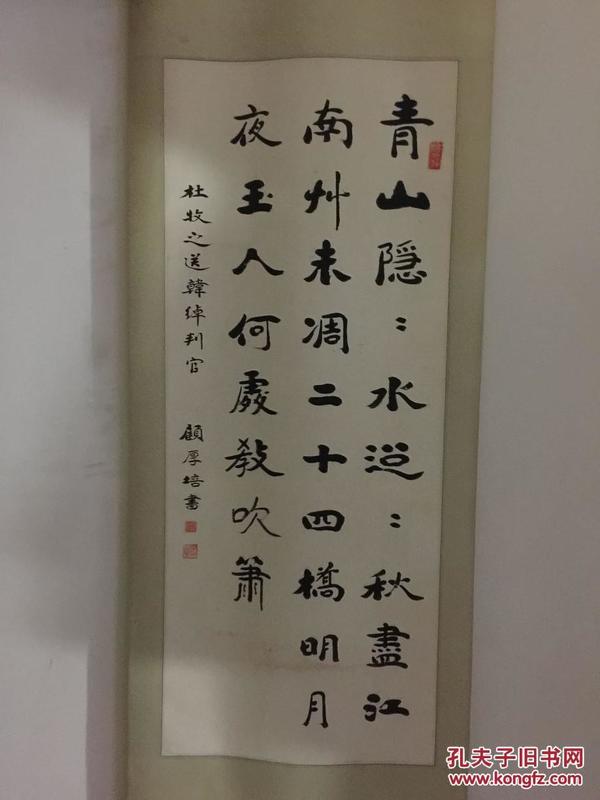 青山隐：水迢：秋盡江
南艸未凋二十四橋明月
夜玉人何處教吹簫
杜牧之送韓綽判官 顧厚培書
孔夫子旧书网
www.kongfz.com